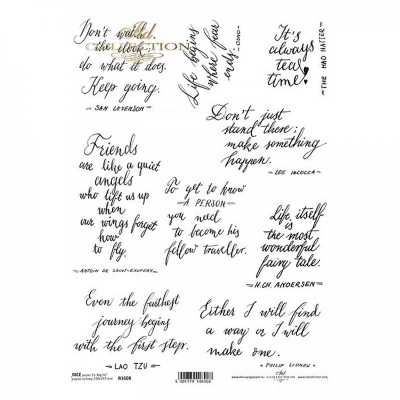 Don't watch
the clock,
do what it does.
Keep going.
- SAM LEVENSON -
Life begins
where fear
ends.
- OSHO -
It's
always
tea
time!
- THE MAD HATTER -
Don't just
stand there;
make something
happen.
- LEE IACOCCA
Friends
are like a quiet
angels
who lift us up
when
our wings forget
how
to fly.
- ANTOIN DE SAINT-EXUPERY -
To get to know
A PERSON
you need
to become his
fellow traveller.
Life itself
is
the most
wonderful
fairy tale.
- H.CH. ANDERSEN -
Even the farthest
journey begins
with the first step.
- LAO TZU -
Either I will find
a way or I will
make one.
- PHILIP SIDNEY -
itd.
COLLECTION
RICE
R1608
5 901779 148908
itd.
COLLECTION